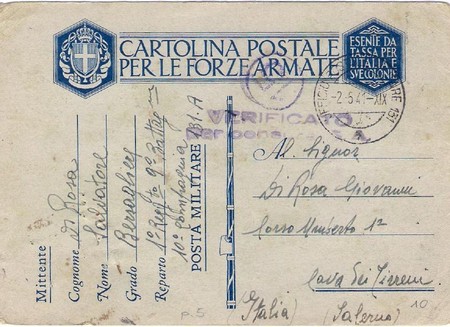 CARTOLINA POSTALE
PER LE FORZE ARMATE
ESENTE DA
TASSA PER
L'ITALIA E
SUE COLONIE
-2.5.41-XIX
VERIFICATO
Per censura
Al Signor
Di Rosa Giovanni
Corso Umberto 1º
Cava dei Tirreni
(Italia) (Salerno)
Mittente
Cognome Di Rosa
Nome Salvatore
Grado Bersagliere
Reparto 1º Regg/to 9º Battag
10º Compagnia
POSTA MILITARE 131.A
p. 5
10